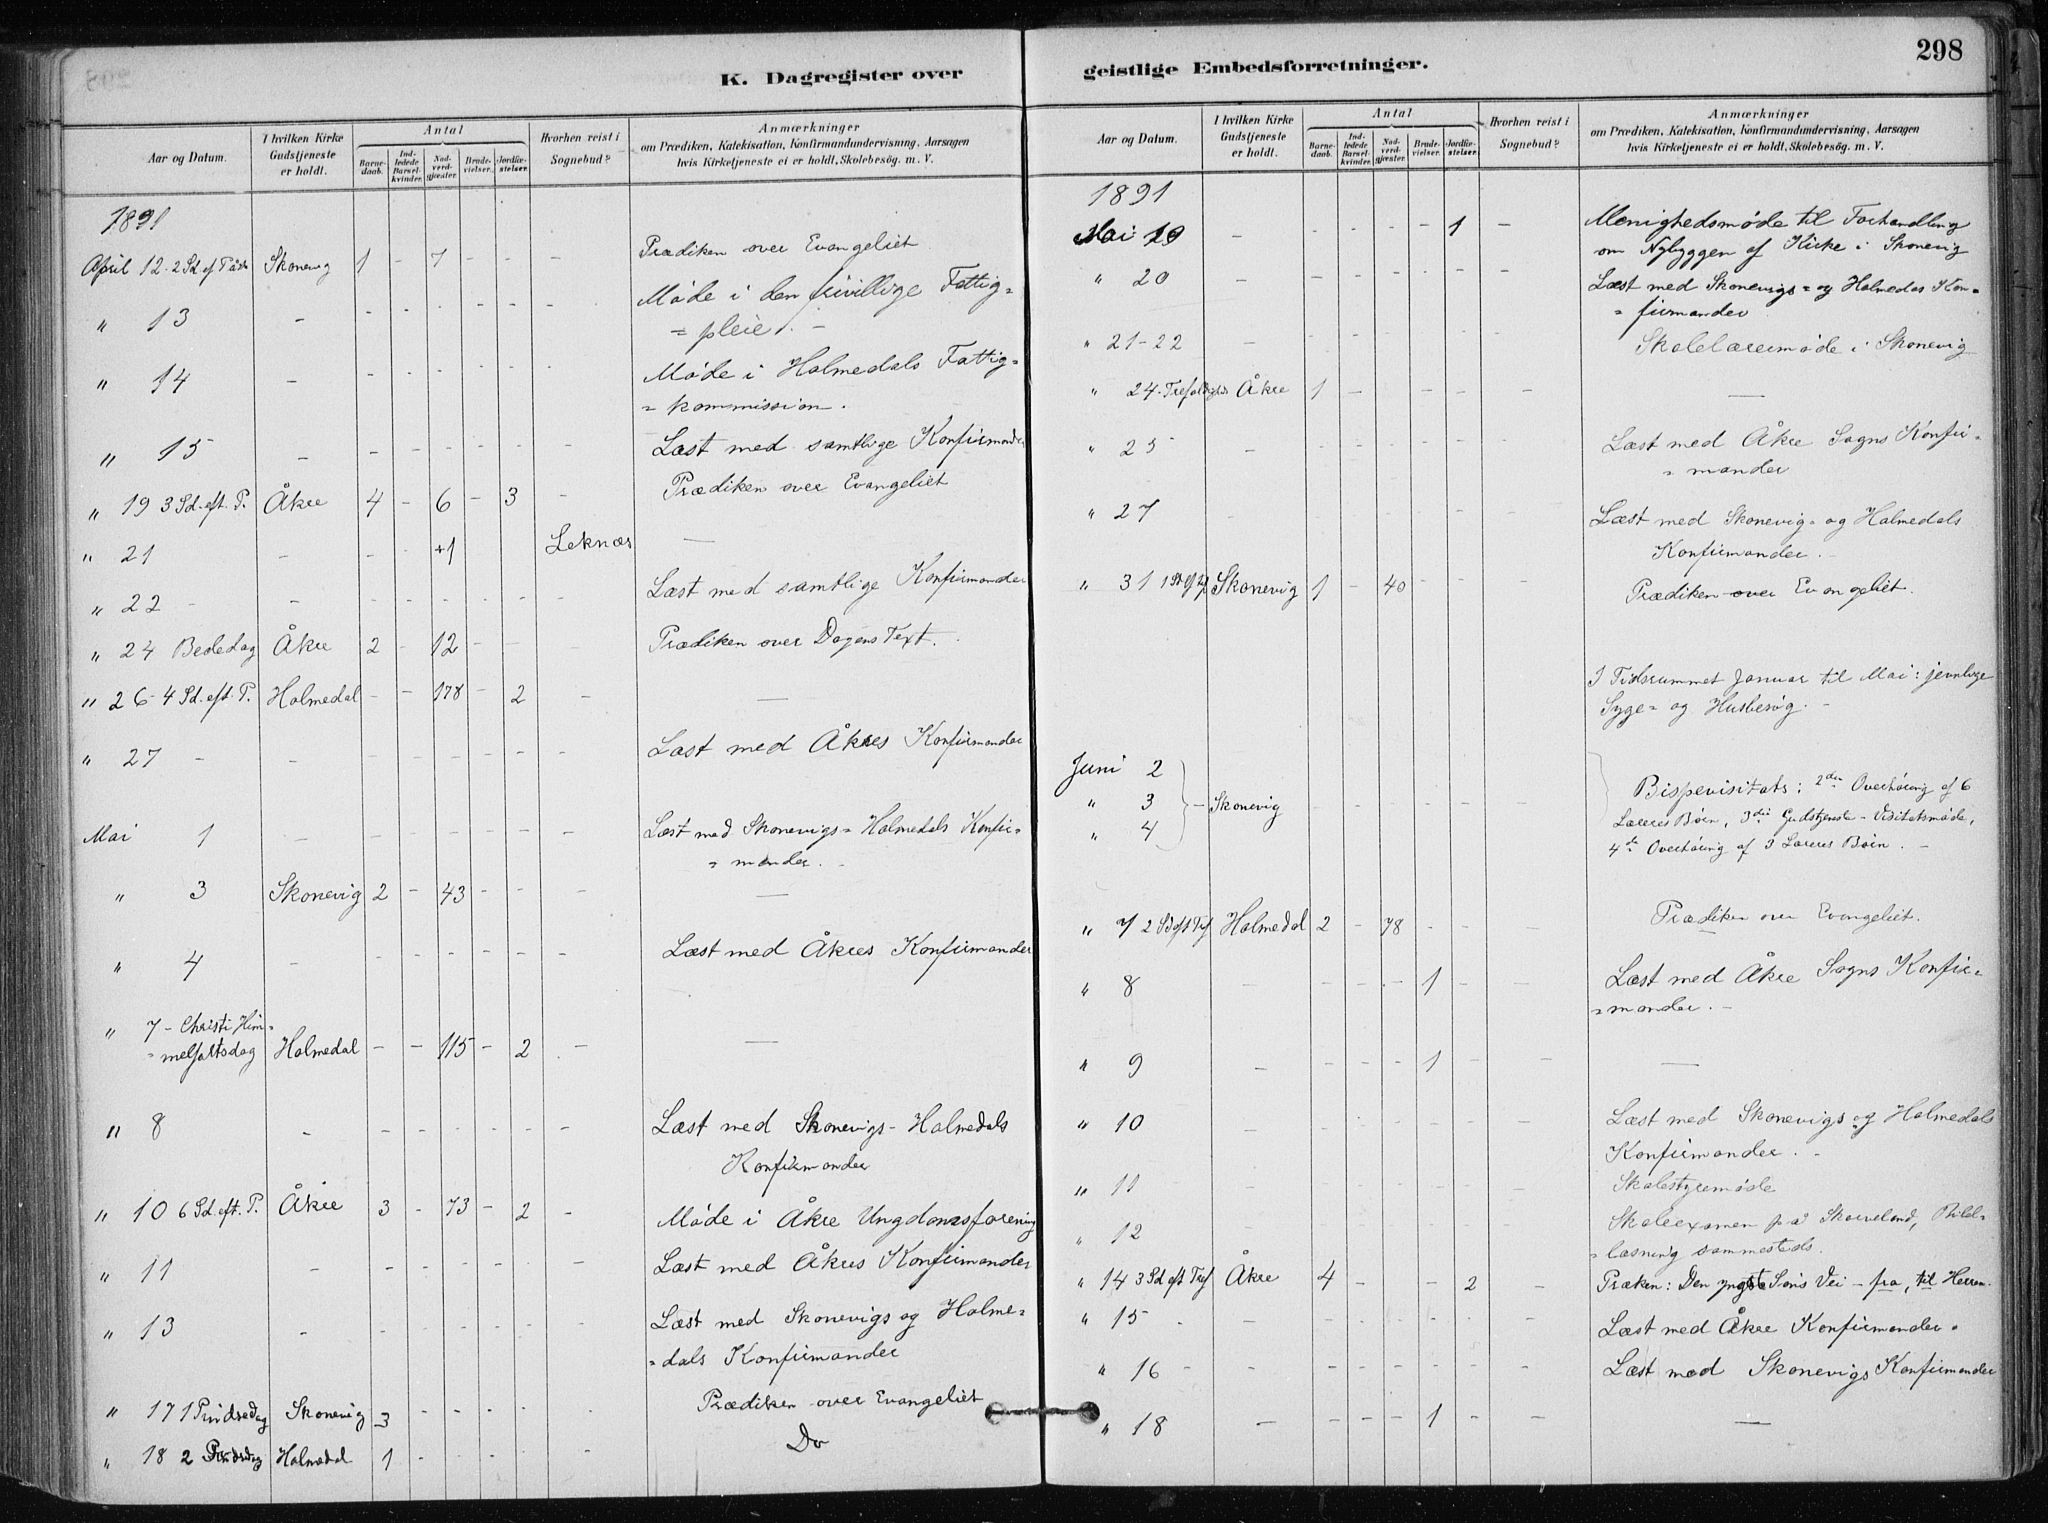 298
K. Dagregister over geistlige Embedsforretninger.
Aar og Datum.
I hvilken Kirke Gudstjeneste er holdt.
Antal
Barnedaab.
Indledede Barselkvinder.
Nadverdgjæster.
Brudevielser.
Jordfæstelser.
Hvorhen reist i Sognebud?
Anmærkninger
om Prædiken, Katekisation, Konfirmandundervisning, Aarsagen
hvis Kirketjeneste ei er holdt, Skolebesøg. m. V.
1891
April 12. 2 Sd. ef. Påske Skonevig 1 - 7 - - - Prædiken over Evangeliet
" 13 - - - - - - - Møde i den frivillige Fattig=
= pleie. -
" 14 - - - - - - - Møde i Holmedals Fattig=
= kommission.
" 15 - - - - - - - Læst med samtlige Konfirmander
" 19 3 Sd. eft. P. Åkre 4 - 6 - 3 - Prædiken over Evangeliet
" 21 - - - +1 Leknæs —
" 22 - - - - - - - - Læst med samtlige Konfirmander
" 24 Bededag Åkre 2 - 12 - - - Prædiken over Dagens Text.
" 26 - 4 Sd. eft. P. Holmedal - - 178 - 2 - —
" 27 - - - - - - - - Læst med Åkres Konfirmander
Mai 1 - - - - - - - Læst med Skonevigs = Holmedals Konfir=
= mander. -
" 3 Skonevig 2 - 43 - - - —
" 4 - - - - - - - Læst med Åkres Konfirmander
" 7 - Christi Him=
= melfartsdag Holmedal - - 115 - 2 - —
" 8 - - - - - - - Læst med Skonevigs - Holmedals
Konfirmander
" 10 6 Sd. eft. P. Åkre 3 - 73 - 2 - Møde i Åkre Ungdomsforening
" 11 - - - - - - - Læst med Åkres Konfirmander
" 13 - - - - - - - Læst med Skonevigs og Holme=
= dals Konfirmander
" 17 1 Pindsedag Skonevig 3 - - - - - Prædiken over Evangeliet
" 18 2 Pindsdag Holmedal 1 - - - - - Do
Aar og Datum.
I hvilken Kirke Gudstjeneste er holdt.
Antal
Barnedaab.
Indledede Barselkvinder.
Nadverdgjæster.
Brudevielser.
Jordfæstelser.
Hvorhen reist i Sognebud?
Anmærkninger
om Prædiken, Katekisation, Konfirmandundervisning, Aarsagen
hvis Kirketjeneste ei er holdt, Skolebesøg. m. V.
1891
Mai 19 - - - - - 1 - Menighedsmøde til Forhandling
om Nybyggen af Kirke i Skonevig
" 20 - - - - - - - Læst med Skonevigs = og Holmedas Kon=
= firmander
" 21-22 - - - - - - - Skolelærermøde i Skonevig
" 24. Trefoldighds Åkre 1 - - - - - —
" 25 - - - - - - - Læst med Åkre Sogns Konfir=
= mander
" 27 - - - - - - - Læst med Skonevig = og Holmedals
Konfirmander. -
" 31 1 Sd. ef. Tref Skonevig 1 - 40 - - - Prædiken over Evangeliet.
I Tidsrummet Januar til Mai: jevnlige
Syge= og Husbesøg. -
Juni 2
" 3 - Skonevig - - - - - - Bispevisitats: 2den Overhøring af 6
Læreres Børn, 3die Gudstjeneste - Visitatsmøde,
" 4 4de Overhøring af 3 Læreres Børn. -
" 7 2 Sd eft Tref Holmedal 2 - 78 - - - Prædiken over Evangeliet.
" 8 - - - - 1 - - Læst med Åkre Sogns Konfir=
= mander. -
" 9 - - - - 1 - - —
" 10 - - - - - - - Læst med Skonevigs og Holmedals
Konfirmander. -
" 11 - - - - - - - Skolestyremøde
" 12 - - - - - - - Skoleexamen på Skorveland, Bibel=
= læsning sammesteds.
" 14 3 Sd eft Tref Åkre 4 - - - 2 - Præken: Den yngste Søns Vei - fra, til Herren.
" 15 - - - - - - - Læst med Åkre Konfirmander.
" 16 - - - - - - - - Læst med Skonevigs Konfirmander
" 18 - - - - 1 - - —